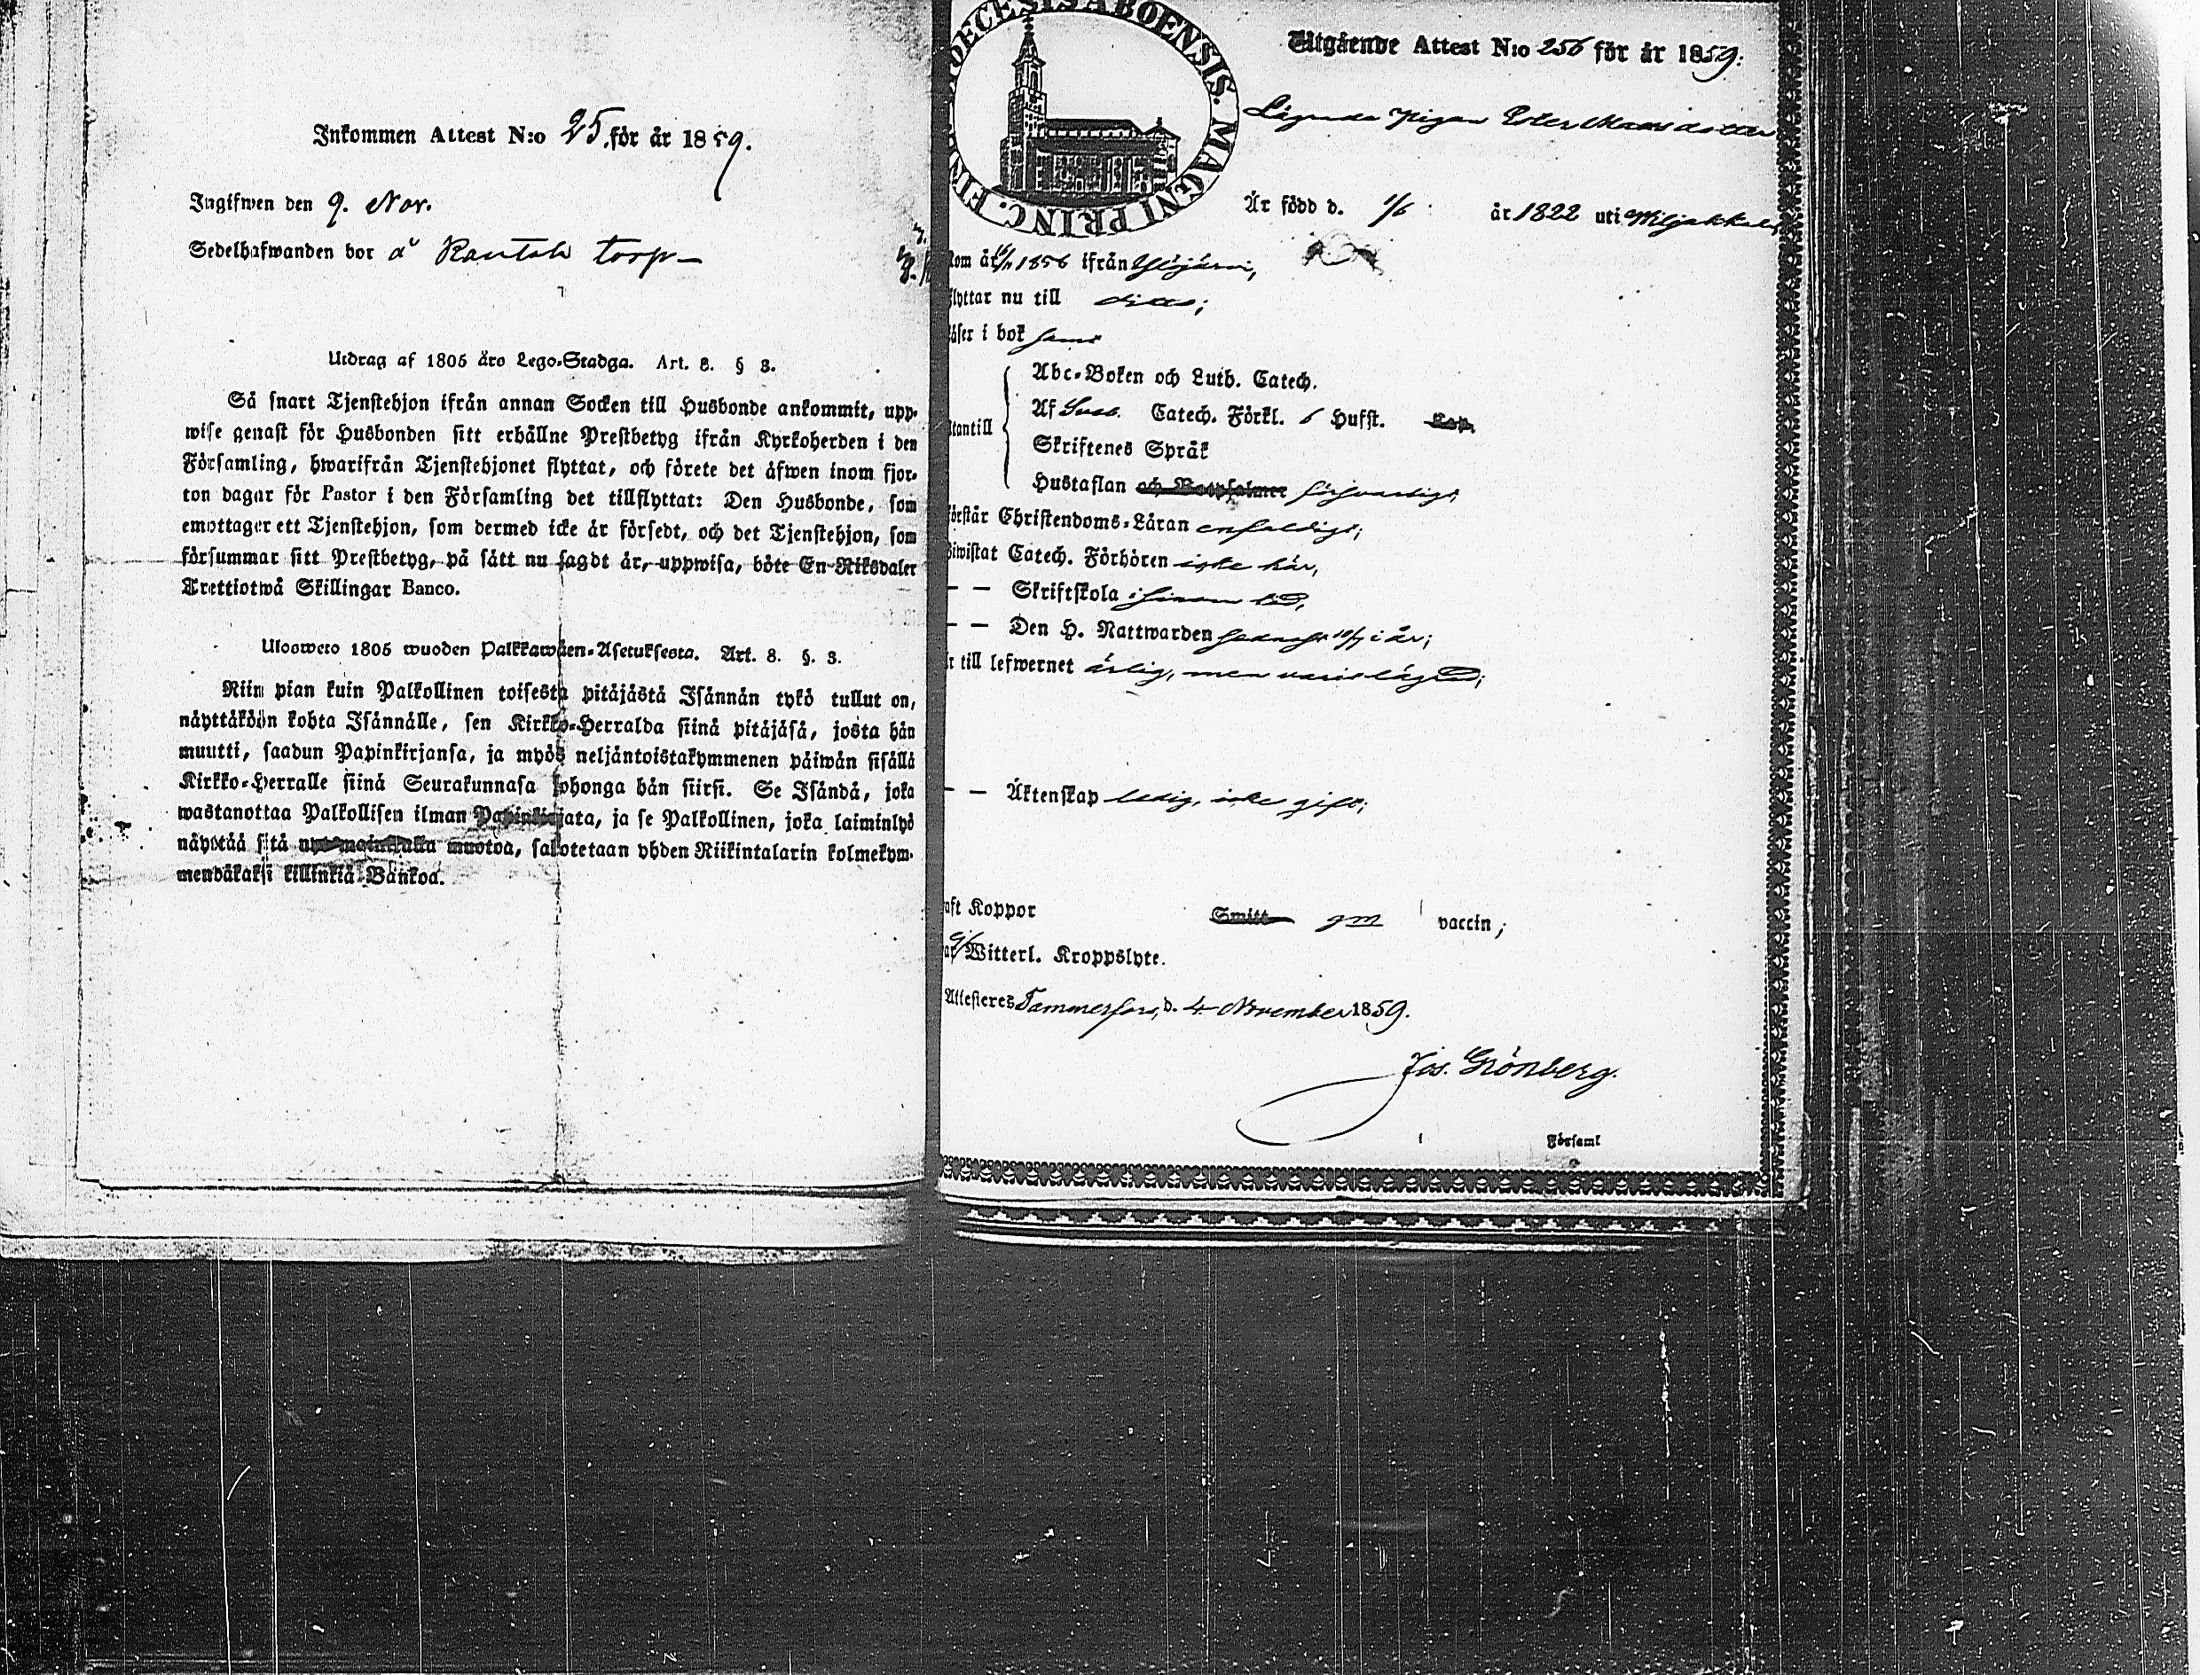 Inkommen Attest N:o 25. för år 1859.
Ingifwen den 9. Nov.
Sedelhafwanden bor å Rautala torp
Utdrag af 1805 års Lego-Stadga. Art. 8. § 3.
Så snart Tjenstehjon ifrån annan Socken till Husbonde ankommit, upp-
wise genast för Husbonden sitt erhållne Prestbetyg ifrån Kyrkoherden i den
Församling, hwarifrån Tjenstehjonet flyttat, och förete det äfwen inom fjor-
ton dagar för Pastor i den Församling det tillflyttat: Den Husbonde, som
emottager ett Tjenstehjon, som dermed icke är försedt, och det Tjenstehjon, som
försummar sitt Prestbetyg, på sätt nu sagdt är, uppwisa, böte En Riksdaler
Trettiotwå Skillingar Banco.
Uloswето 1805 wuoden Palkkawäen-Asetuksesta. Art. 8. §. 3.
Niin pian kuin Palkollinen toisesta pitäjästä Isännän tykö tullut on,
näyttäköön kohta Isännälle, sen Kirkko-Herralda siinä pitäjäsä, josta hän
muutti, saadun Papinkirjansa, ja myös neljäntoistakymmenen päiwän sisällä
Kirkko-Herralle siinä Seurakunnasa johonga hän siirsi. Se Isändä, joka
wastanottaa Palkollisen ilman Papinkirjata, ja se Palkollinen, joka laiminlyö
näyttää sitä nyt mainittua muotoa, sakotetaan yhden Riikintalarin kolmekym-
mendäkaksi killinkiä Bankoa.
DECESIS ABOENSIS. MAGNI PRINC. FINL
Utgående Attest N:o 256 för år 1859:
Lägrade Pigan Ester Matsdotter
Är född d. 1/6 år 1822 uti Wiljakkala,
Kom år 1856 ifrån Ylöjärvi,
flyttar nu till ditto;
läser i bok
Abc-Boken och Luth. Catech.
Af Sveb. Catech. Förkl. 6 Hufst.
utantill
Skriftenes Språk
Hustaflan och Botpsalmer försvarligt,
förstår Christendoms-Läran enfaldigt;
biwistat Catech. Förhören icke här,
— — Skriftskola i sinom tid,
— — Den H. Nattwarden senast 10/7 i år;
är till lefwernet ärlig, men varit lägrad;
— — Äktenskap ledig, icke gift;
haft Koppor Smitt gm vaccin;
har Witterl. Kroppslyte.
Attesteres Tammerfors, d. 4 November 1859.
Jos. Grönberg.
Församl